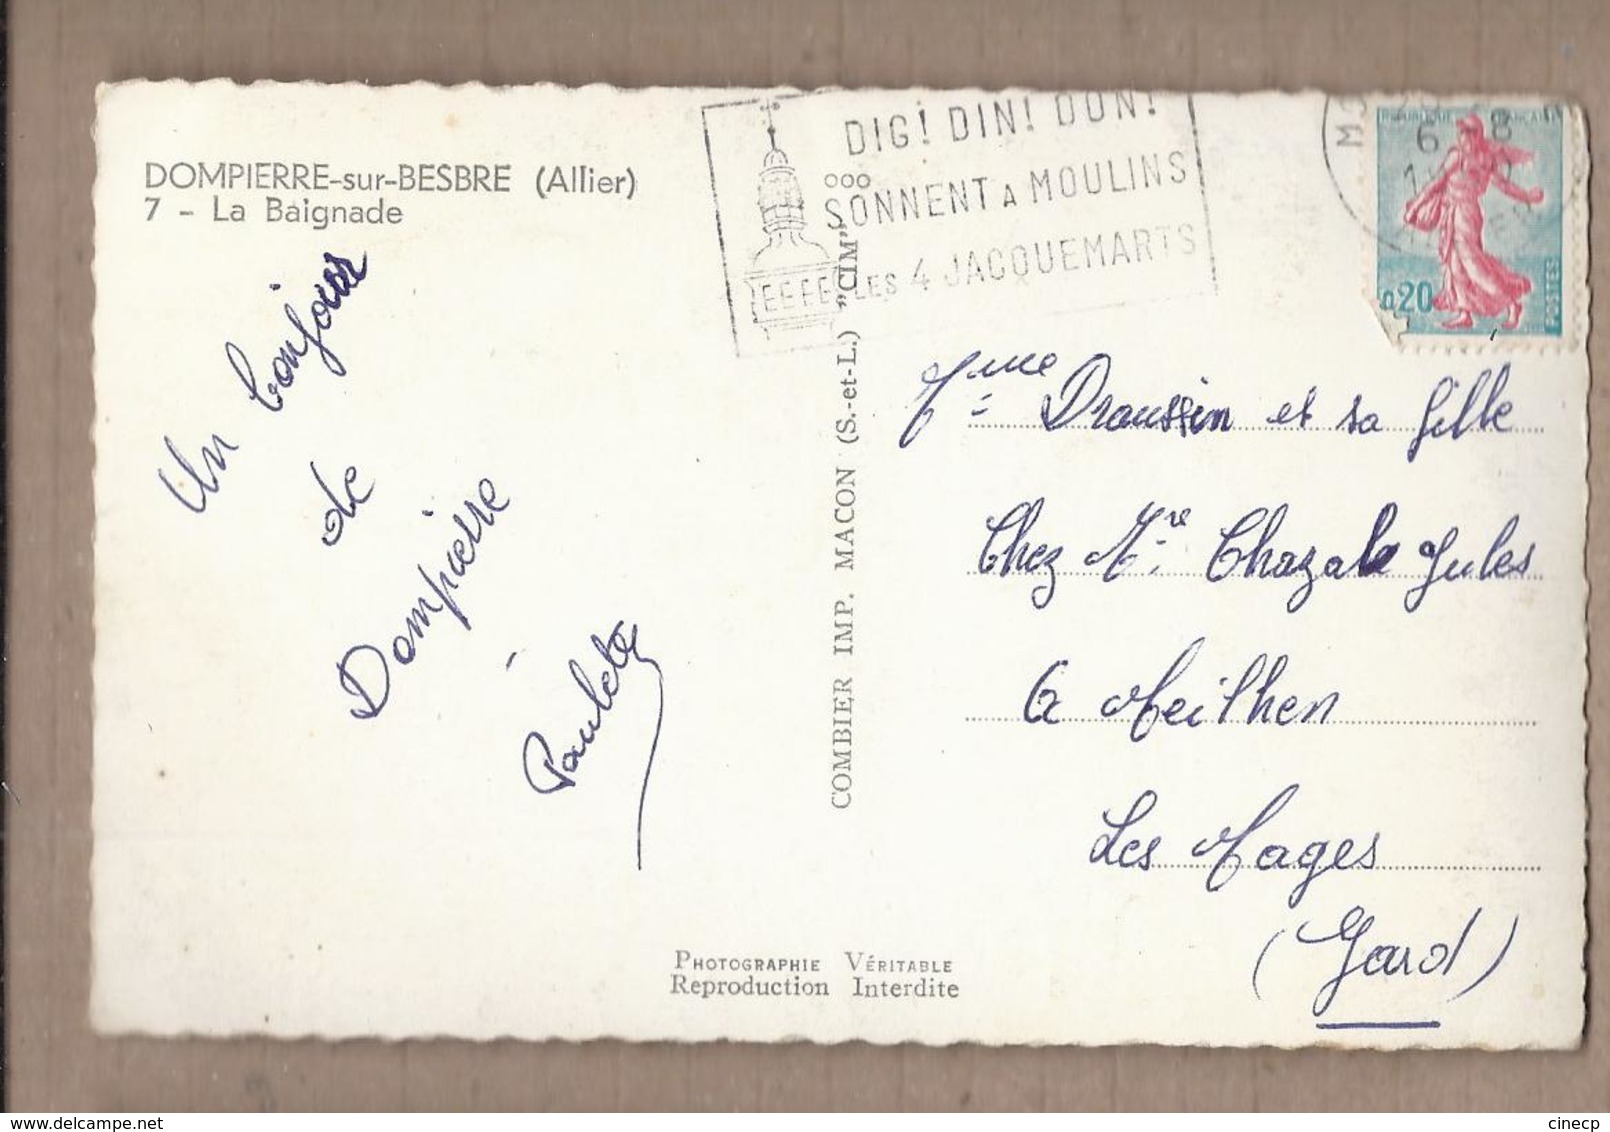 DOMPIERRE-sur-BESBRE (Allier)
7 - La Baignade
Un bonjour
de
Dompierre
Paulette
DIG! DIN! DON!
SONNENT A MOULINS
LES 4 JACQUEMARTS
REPUBLIQUE FRANCAISE
0,20
POSTES
6 - 8
COMBIER IMP. MACON (S.-et-L.) "CIM"
Mme Draussin et sa fille
Chez Mr. Chazale Jules
à Meilhen
Les Mages
(Gard)
PHOTOGRAPHIE VÉRITABLE
Reproduction Interdite
cinecp